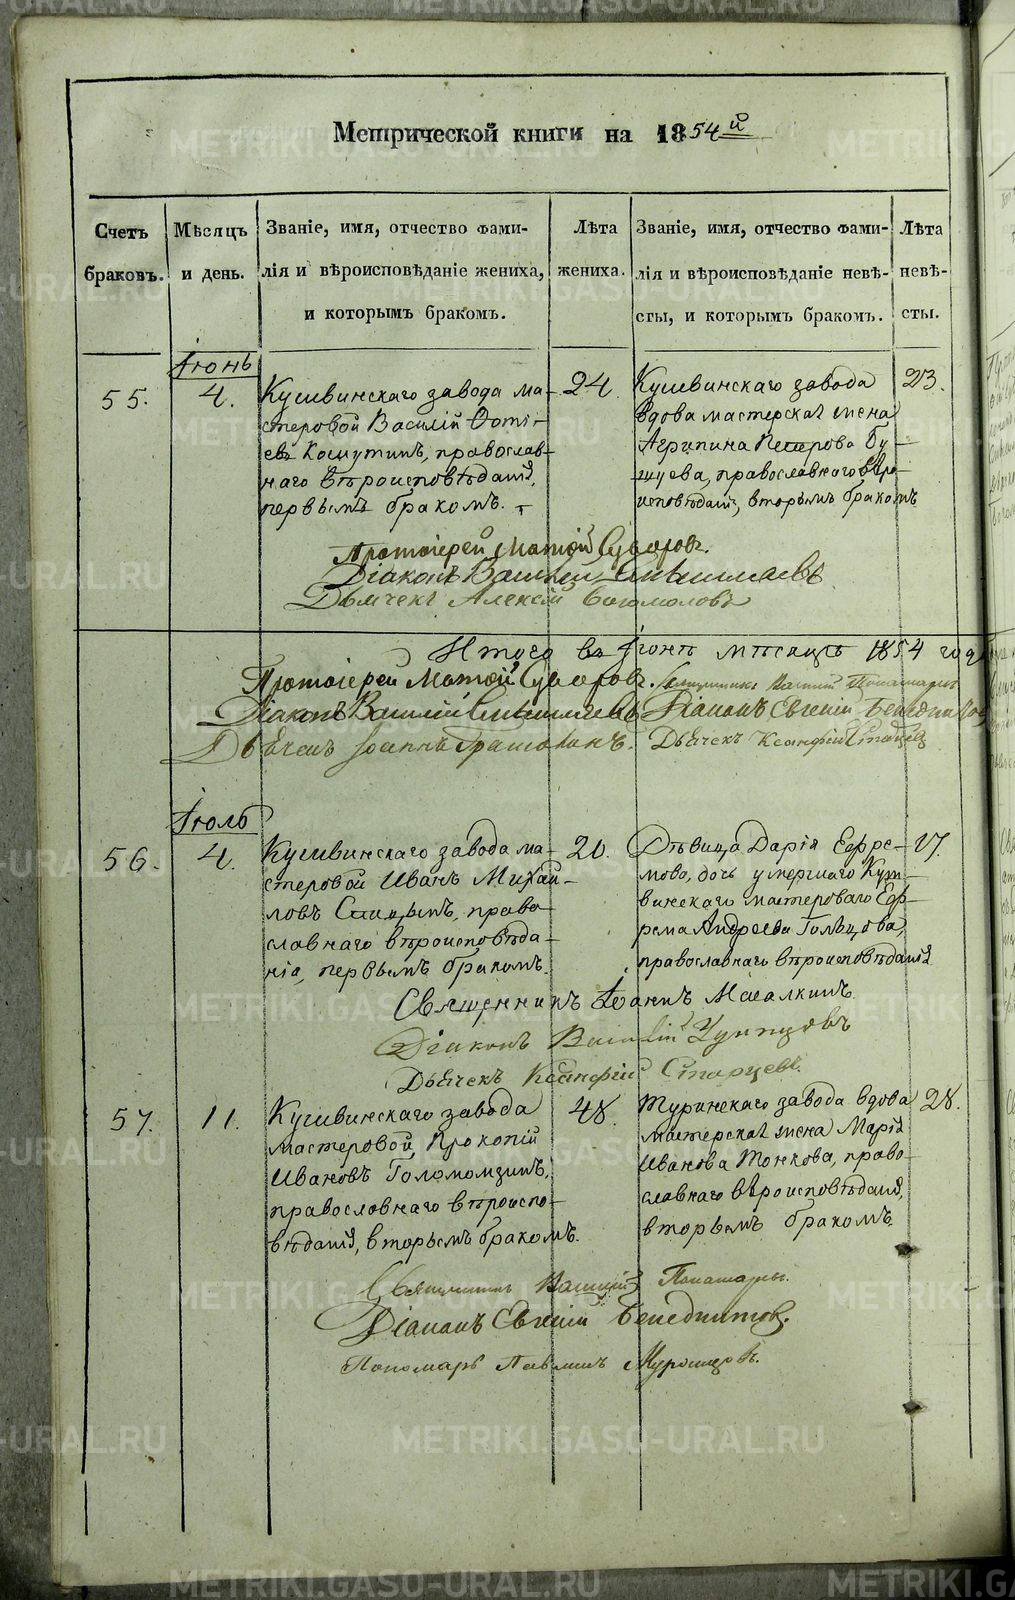 Метрической книги на 1854й
Счетъ браковъ.
Мѣсяцъ и день.
Званіе, имя, отчество фами-
лія и вѣроисповѣданіе жениха,
и которымъ бракомъ.
Лѣта жениха.
Званіе, имя, отчество фами-
лія и вѣроисповѣданіе невѣ-
сты, и которымъ бракомъ.
Лѣта невѣ-
сты.
Іюнь
55.
4.
Кушвинскаго завода ма-
стеровой Василій Фоті-
евъ Кошутинъ, православ-
наго вѣроисповѣданія,
первымъ бракомъ.
24.
Кушвинскаго завода
вдова мастерская жена
Агрипина Петрова Бу-
шуева, православнаго вѣро-
исповѣданія, вторымъ бракомъ
23.
Протоіерей Матѳій Суворовъ.
Діаконъ Василій
Дьячекъ Алексій Богомоловъ
Итого въ Іюнѣ мѣсяцѣ 1854 года
Протоіерей Матѳій Суворовъ. Священникъ Василій
Діаконъ Василій Діаконъ Евгеній Бенедиктов
Дьячекъ Іоаннъ Дьячекъ Ксенофій Старцев
Іюль
56.
4.
Кушвинскаго завода ма-
стеровой Иванъ Михай-
ловъ право-
славнаго вѣроисповѣда-
нія, первымъ бракомъ.
20.
Дѣвица Дарія Ефре-
мова, дочь умершаго Куш-
винскаго мастероваго Еф-
рема Андреева Гольцова,
православнаго вѣроисповѣданія
17.
Священникъ Іоаннъ Масалкинъ
Діаконъ Василій
Дьячекъ Ксенофій Старцевъ.
57.
11.
Кушвинскаго завода
мастеровой, Прокопій
Ивановъ Голомомзинъ,
православнаго вѣроиспо-
вѣданія, вторымъ бракомъ.
48.
Туринскаго завода вдова
мастерская жена Марія
Иванова Тонкова, право-
славнаго вѣроисповѣданія,
вторымъ бракомъ
28.
Священникъ Василій
Діаконъ Евгеній Бенедиктов.
Пономарь Павлинъ
METRIKI.GASO-URAL.RU